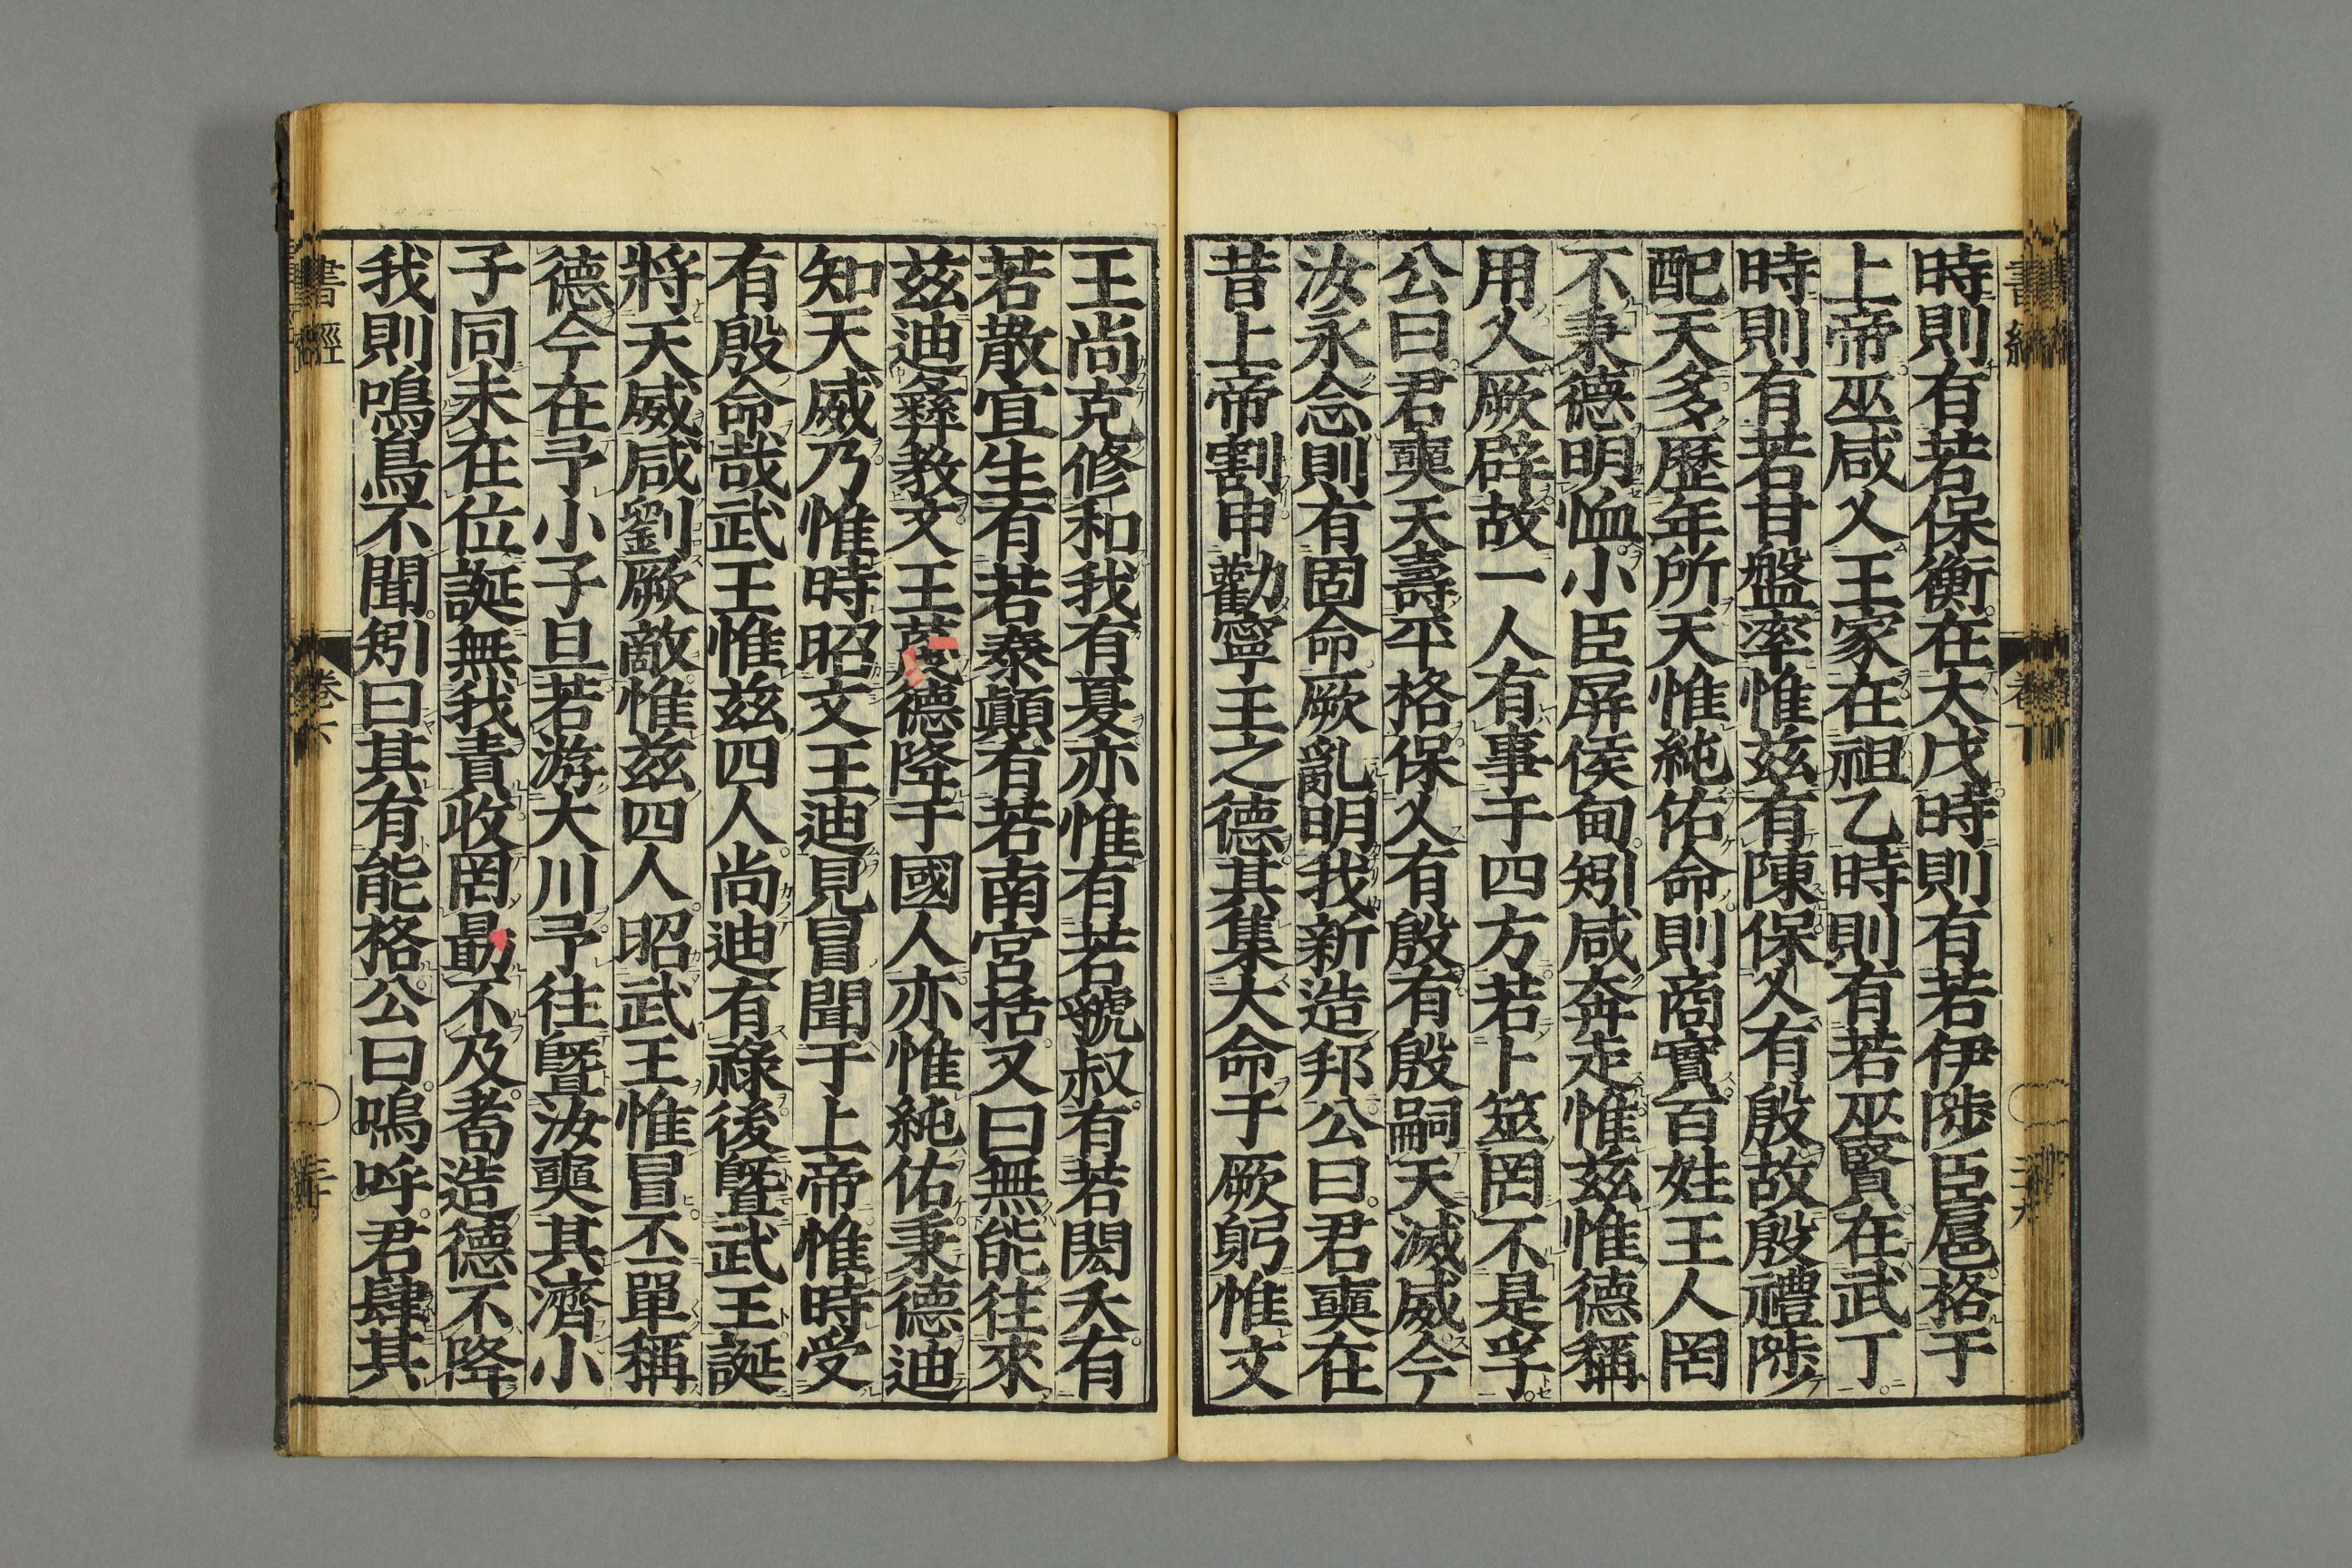 時則有若保衡在太戊時則有若伊陟臣扈格于
上帝巫咸乂王家在祖乙時則有若巫賢在武丁
時則有若甘盤率惟玆有陳保乂有殷故殷禮陟
配天多歷年所天惟純佑命則商實百姓王人罔
不秉德明恤小臣屏侯甸矧咸奔走惟玆惟德稱
用乂厥辟故一人有事于四方若卜筮罔不是孚
公曰君奭天壽平格保乂有殷有殷嗣天滅威今
汝永念則有固命厥亂明我新造邦公曰君奭在
昔上帝割申勸寧王之德其集大命于厥躬惟文
王尚克修和我有夏亦惟有若虢叔有若閎夭有
若散宜生有若泰顚有若南宮括又曰無能往來
玆迪彝教文王蔑德降于國人亦惟純佑秉德迪
知天威乃惟時昭文王迪見冒聞于上帝惟時受
有殷命哉武王惟玆四人尚迪有祿後曁武王誕
將天威咸劉厥敵惟玆四人昭武王惟冒丕單稱
德今在予小子旦若游大川予往曁汝奭其濟小
子同未在位誕無我責收罔勗不及耇造德不降
我則鳴鳥不聞矧曰其有能格公曰嗚呼君肆其
書經
卷六
三十